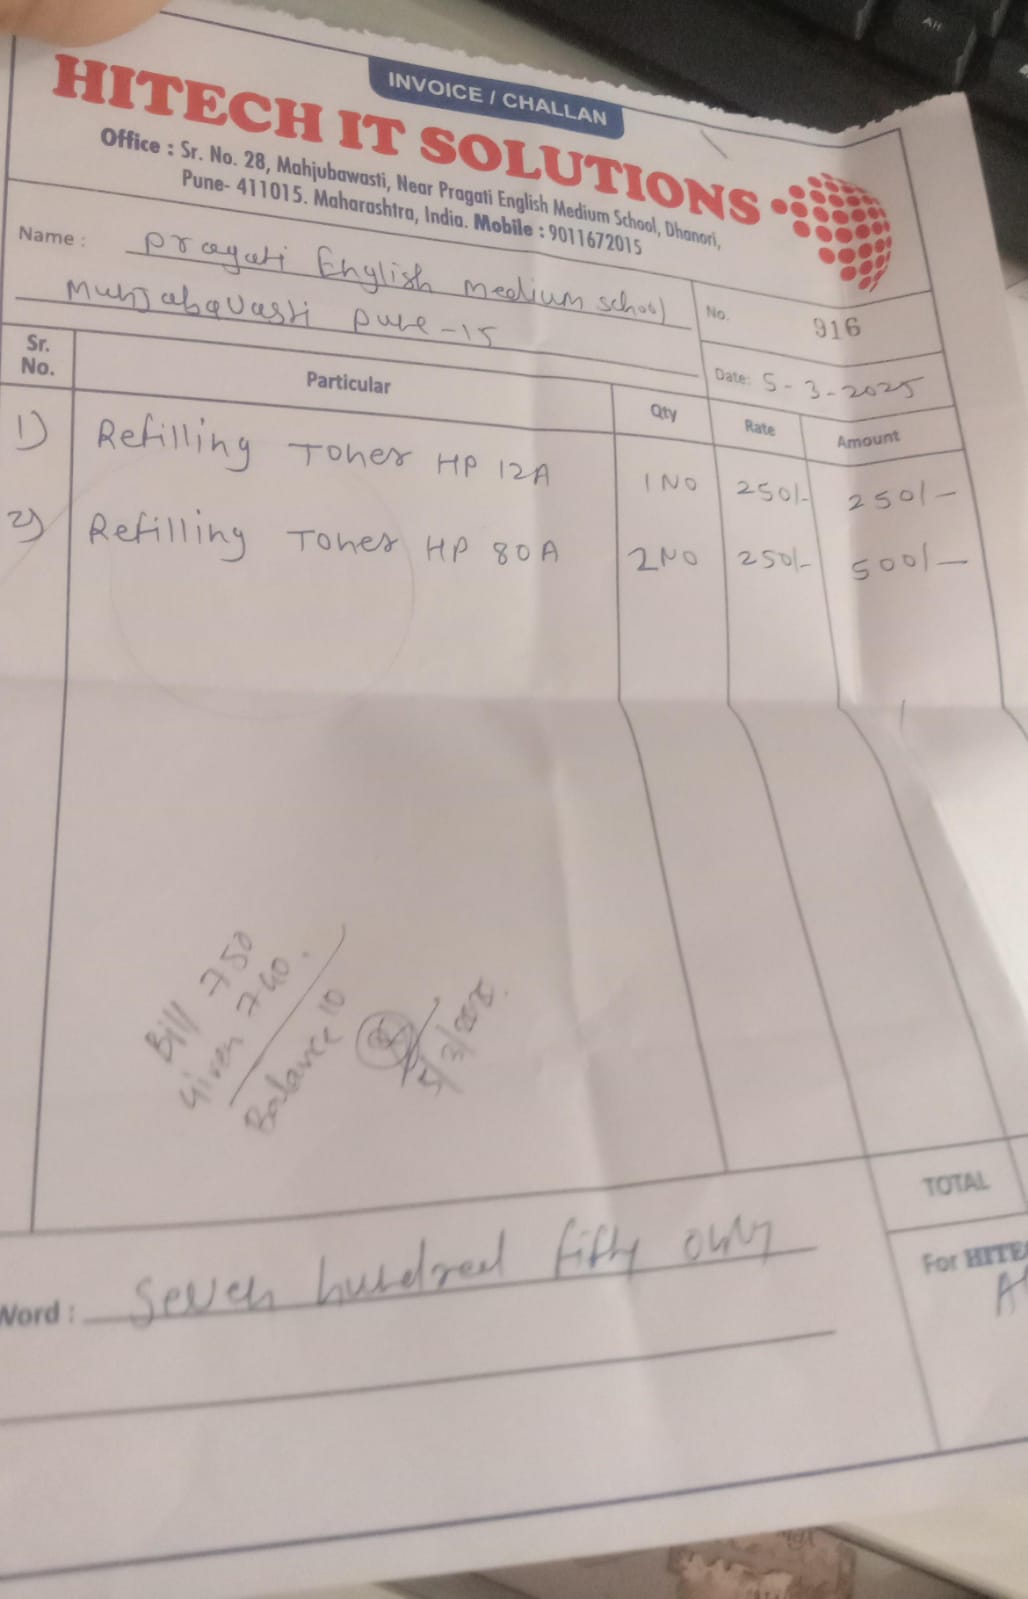 INVOICE / CHALLAN
HITECH IT SOLUTIONS
Office : Sr. No. 28, Mahjubawasti, Near Pragati English Medium School, Dhanori,
Pune- 411015. Maharashtra, India. Mobile : 9011672015
Name : Pragati English medium school
Muhjabavasti pune-15
No. 916
Date: 5-3-2025
Sr. No. Particular Qty Rate Amount
1) Refilling Toner HP 12A 1NO 250/- 250/-
2) Refilling Toner HP 80A 2NO 250/- 500/-
Bill 750
Given 740.
Balance 10
5/3/2025.
TOTAL
Word : Seven hundred fifty only
For HITE